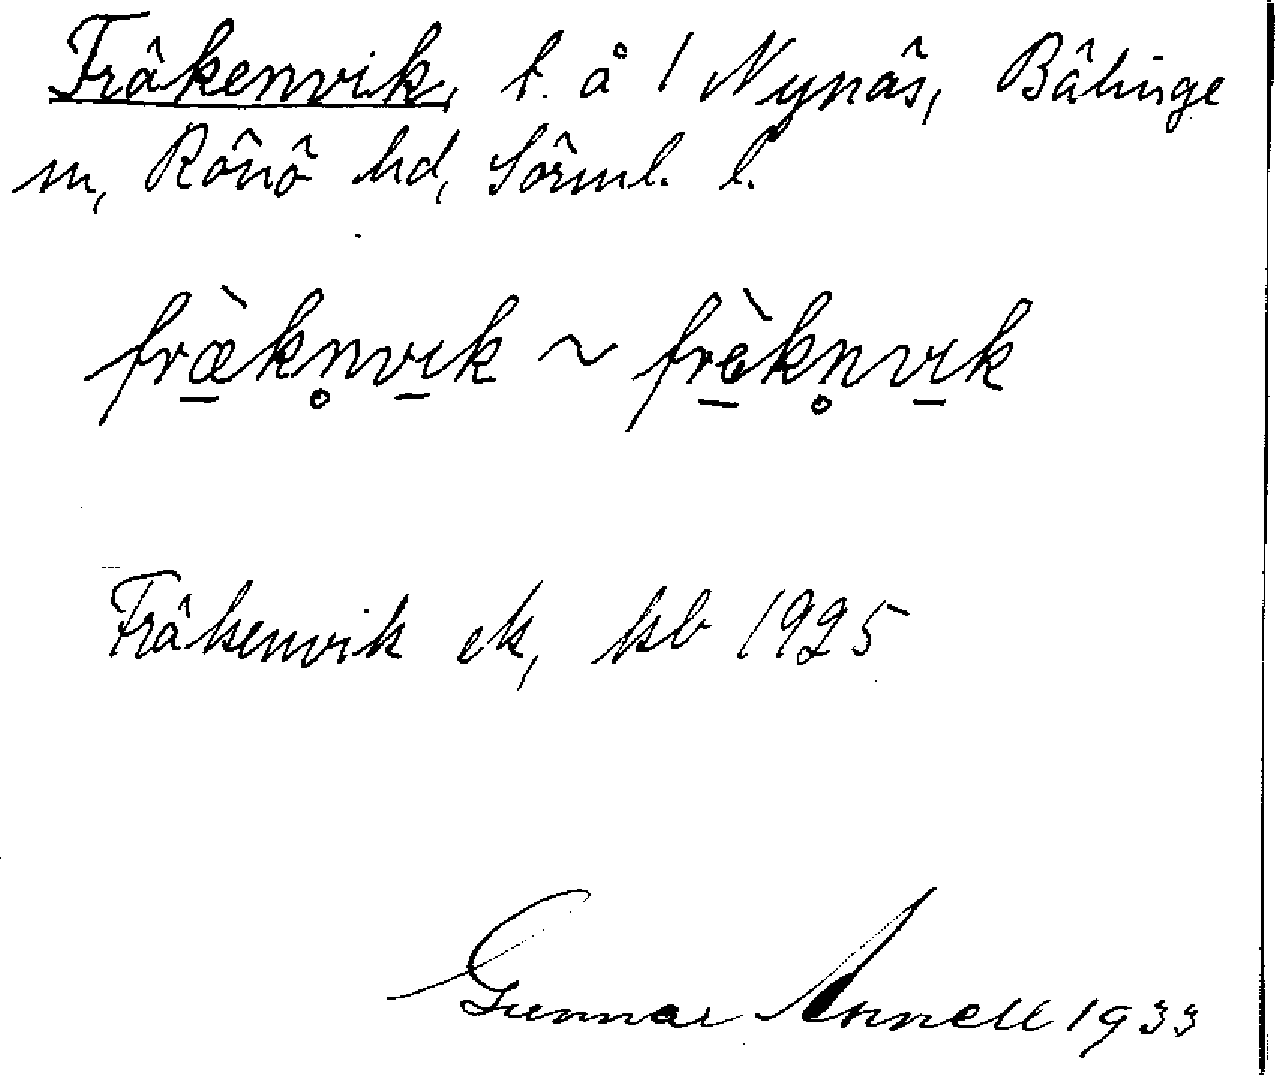 Fräkenvik, t. å 1 Nynäs, Bälinge
sn, Rönö hd, Sörml. l.
fræ̀kn̥vik ~ frèkn̥vik
Fräkenvik ek, kb 1925
Gunnar Annell 1933